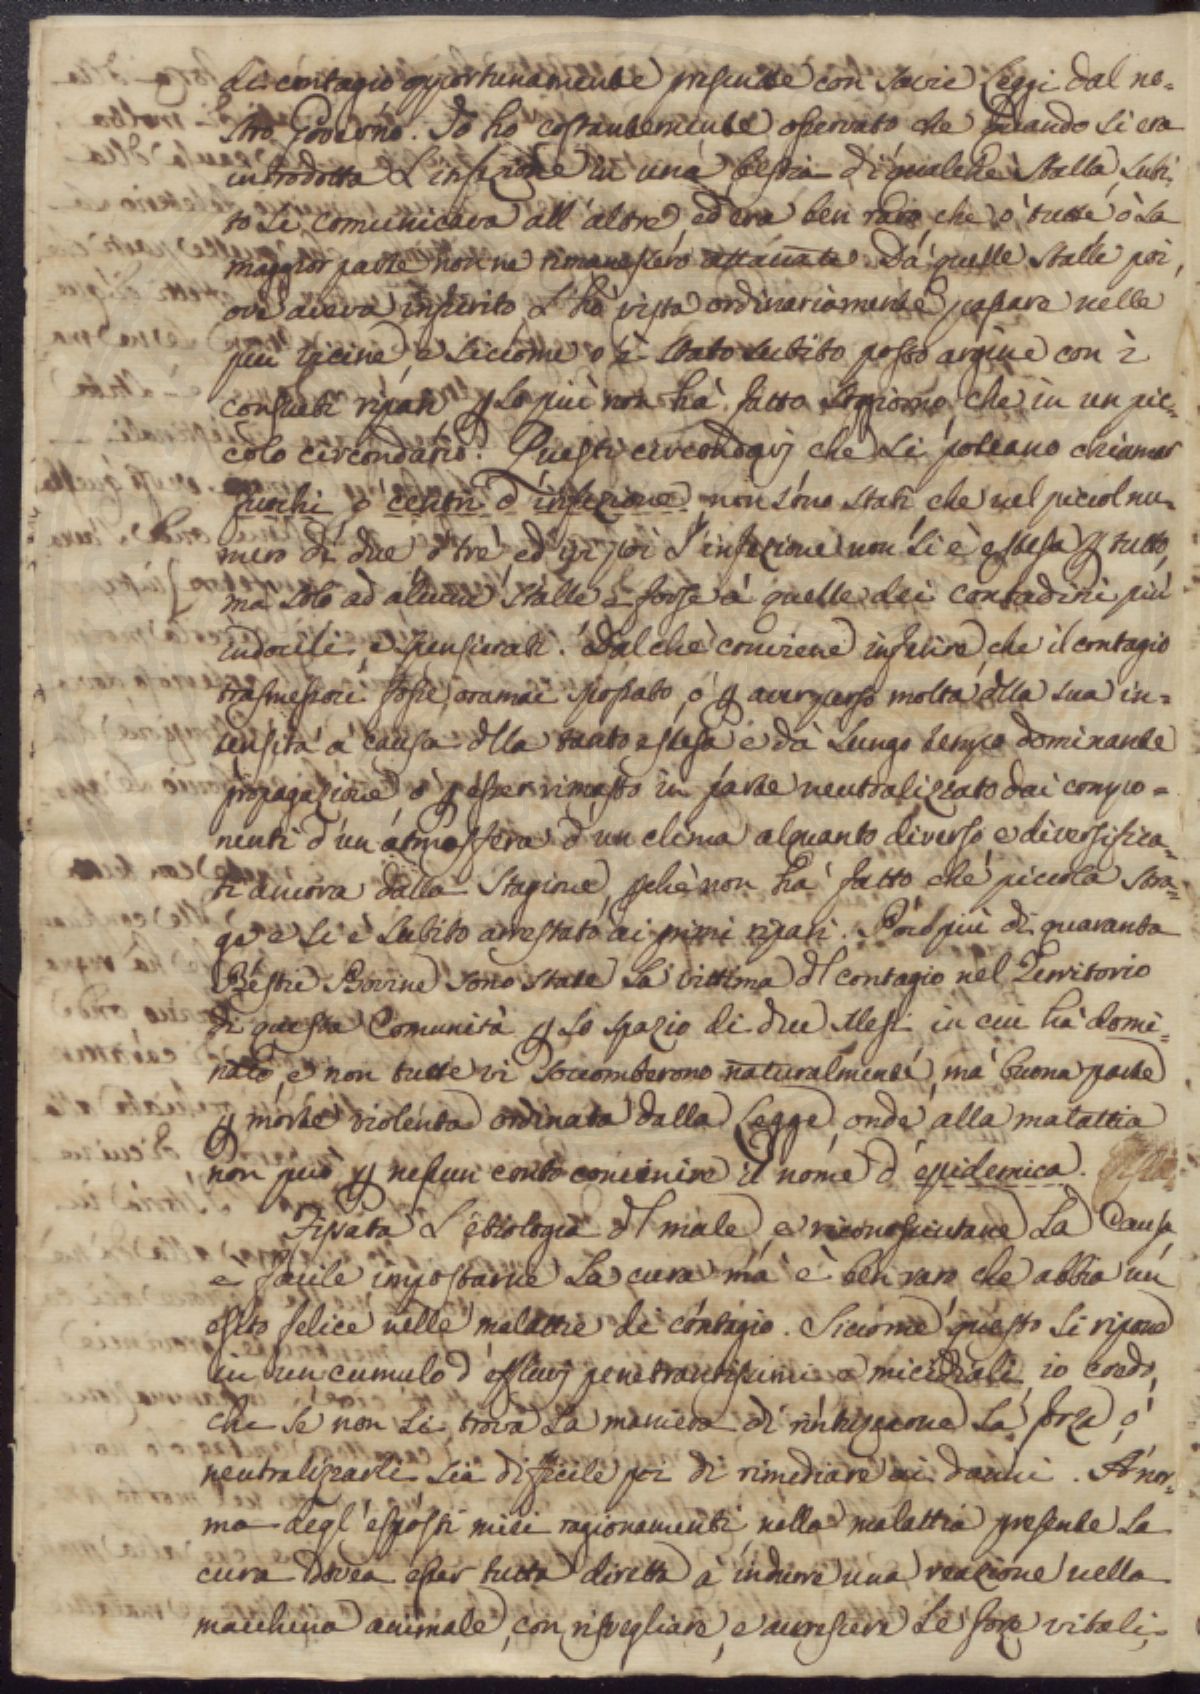 di contagio opportunamente prescritte con savie Leggi dal no=
stro Governo. Io ho costantemente osservato che quando si era
introdotta l'infezione in una bestia di qualche Stalla, subi=
to si comunicava all'altre, ed era ben raro, che ò tutte ò la
maggior parte non ne rimanessero attaccate. Da quelle Stalle poi,
ove aveva inferito, l'hò vista ordinariamente passare nelle
più vicine, e siccome o è stato subito posto argine con i
consueti ripari, p lo più non hà fatto soggiorno, che in un pic=
colo circondario. Questi circondarj che si poteano chiamar
fuochi, ò centri d'infezione non sono stati che nel piccol nu=
mero di due, ò tré, ed ivi poi l'infezione non si è estesa p tutto,
ma solo ad alcune Stalle e forse à quelle dei contadini più
indocili, e spensierati. Dal che conviene inferire, che il contagio
trasmessoci fosse oramai spossato, ó p aver perso molta dlla sua in=
tensità a causa dlla tanto estesa e da lungo tempo dominante
propagazione, ò p esser rimasto in parte neutralizzato dai compo=
nenti d'un'atmosfera d'un clima alquanto diverso e diversifica=
ti ancora dalla Stagione, pchè non ha fatto che piccola stra=
ge e si è subito arrestato ai primi ripari. Poco più di quaranta
Bestie Bovine sono state la vittima dl contagio nel Territorio
di questa Comunità p lo spazio di due Mesi in cui hà domi=
nato, e non tutte vi soccomberono naturalmente, mà buona parte
p morte violenta ordinata dalla Legge, onde alla malattia
non può p nessun conto convenire il nome d'epidemica.
Fissata l'etiologia dl male, e riconosciutane la Causa
è facile impostarne la cura mà è ben raro che abbia un
esito felice nelle malattie di contagio. Siccome questo si ripone
in un cumulo d'effluvj penetrantissimi e micidiali, io credo,
che se non si trova la maniera di rintuzzarne la forza, ó
neutralizzarli sia difficile poi di rimediare ai danni. A nor=
ma degl'esposti miei ragionamenti nella malattia presente la
cura dovea esser tutta diretta à indurre una reazione nella
macchina animale, con risvegliare, e accrescere le forze vitali,